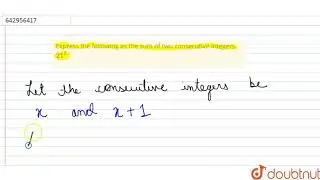 642956417
Express the following as the sum of two consecutive integers.
21²
Let the consecutive integers be
x and x+1
doubtnut